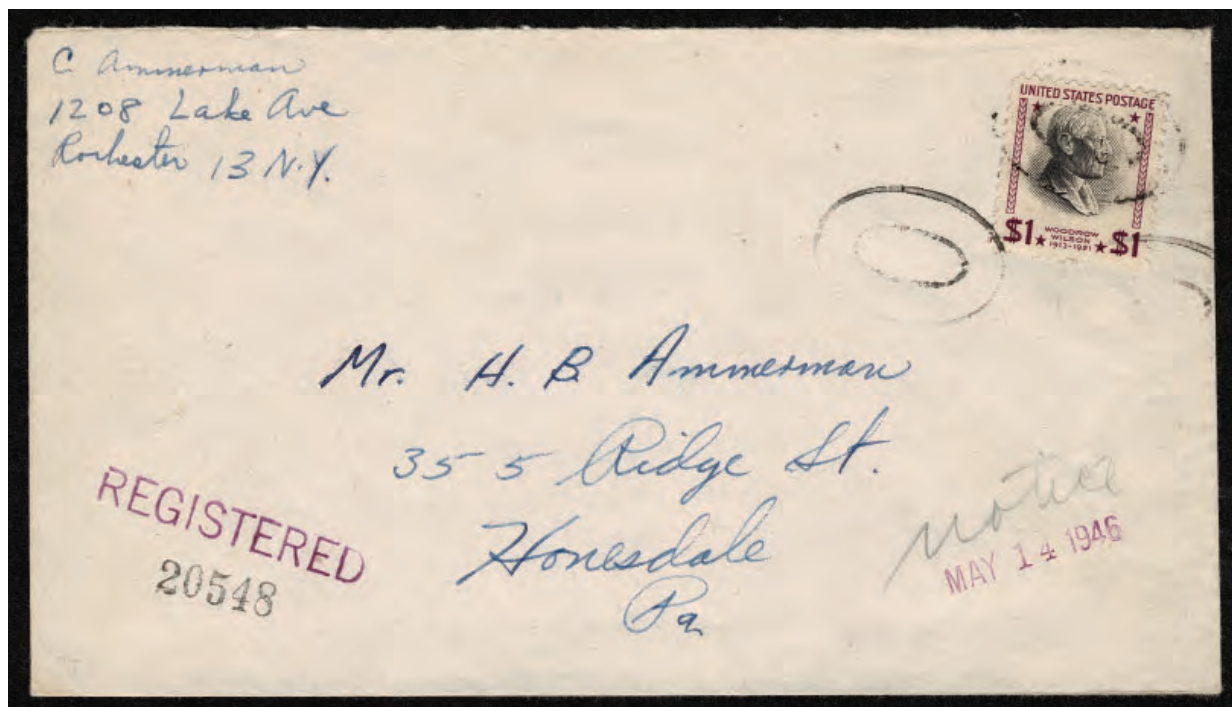 C. Ammerman
1208 Lake Ave
Rochester 13 N.Y.
UNITED STATES POSTAGE
$1 WOODROW WILSON 1913-1921 $1
Mr. H. B. Ammerman
355 Ridge St.
Honesdale
Pa
REGISTERED
20548
notice
MAY 14 1946